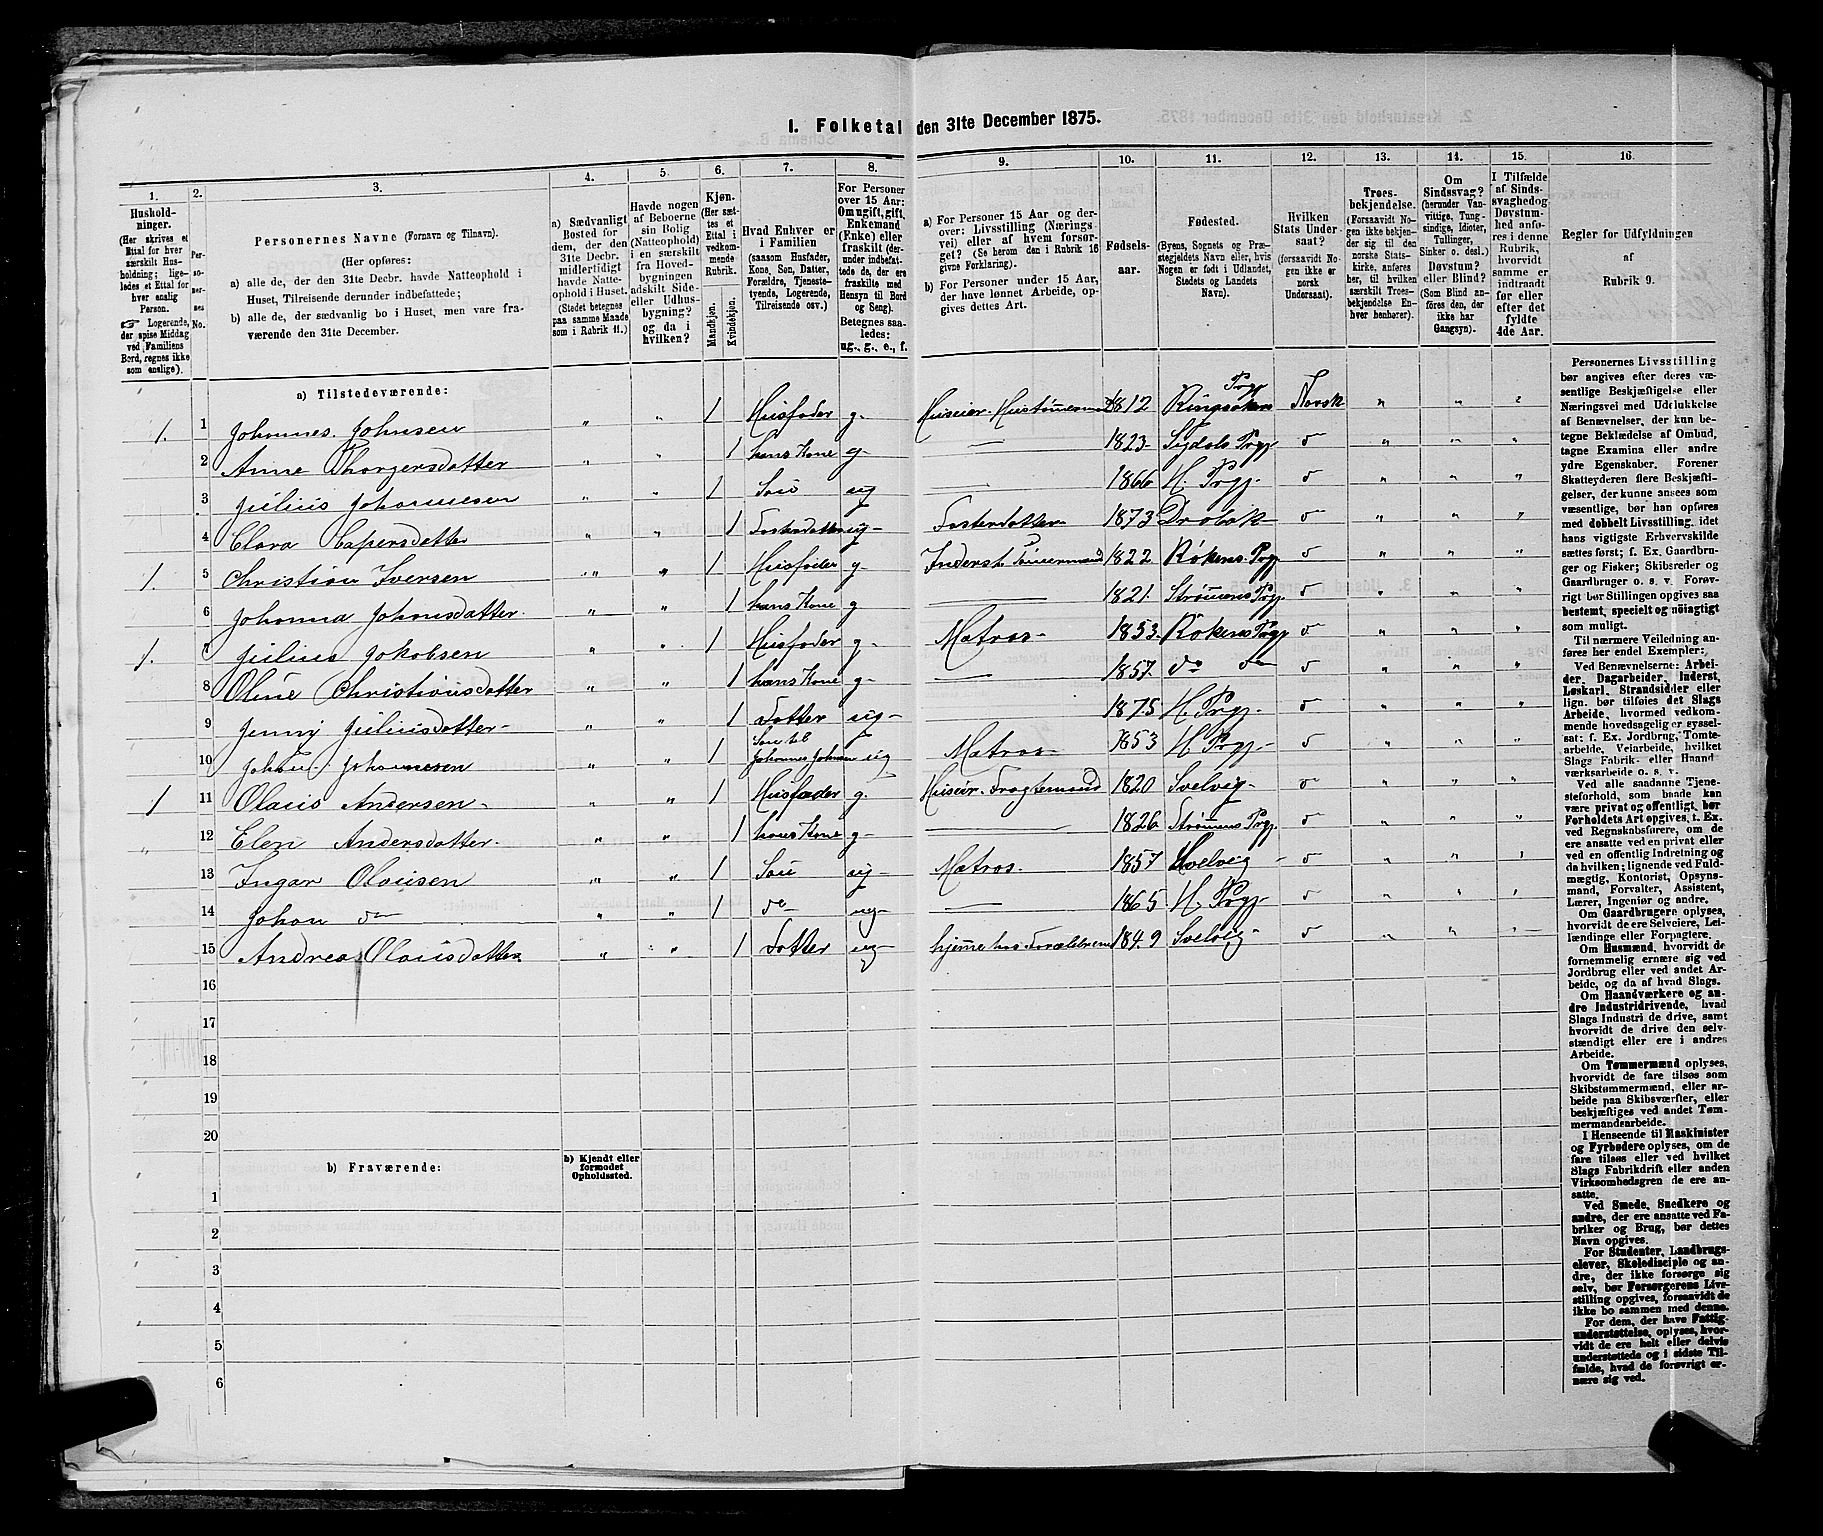 I. Folketal den 31te December 1875.
1.
Hushold-
ninger.
(Her skrives et
Ettal for hver
særskilt Hus-
holdning; lige-
ledes et Ettal for
hver enslig
Person.
☞ Logerende,
der spise Middag
ved Familiens
Bord, regnes ikke
som enslige).
2.
Per-
so-
ner-
nes
No.
3.
Personernes Navne (Fornavn og Tilnavn).
(Her opføres:
a) alle de, der den 31te Decbr. havde Natteophold i
Huset, Tilreisende derunder indbefattede;
b) alle de, der sædvanlig bo i Huset, men vare fra-
værende den 31te December.
4.
a) Sædvanligt
Bosted for
dem, der den
31te Decbr.
midlertidigt
havde Natte-
ophold i Huset.
(Stedet betegnes
paa samme Maade
som i Rubrik 11.)
5.
Havde nogen
af Beboerne
sin Bolig
(Natteophold)
i en særskilt
fra Hoved-
bygningen
adskilt Side-
eller Udhus-
bygning?
og da i
hvilken?
6.
Kjøn.
(Her sæt-
tes et
Ettal i
vedkom-
mende
Rubrik.
Mandkjøn.
Kvindekjøn.
7.
Hvad Enhver er
i Familien
(saasom Husfader,
Kone, Søn, Datter,
Forældre, Tjeneste-
tyende, Logerende,
Tilreisende osv.)
8.
For Personer
over 15 Aar:
Om ugift, gift,
Enkemand
(Enke) eller
fraskilt (der-
under indbefat-
tede de, der ere
fraskilte med
Hensyn til Bord
og Seng).
Betegnes saa-
ledes:
ug., g., e., f.
9.
a) For Personer 15 Aar og der-
over: Livsstilling (Nærings-
vei) eller af hvem forsør-
get? (Se herom den i Rubrik 16
givne Forklaring).
b) For Personer under 15 Aar,
der have lønnet Arbeide, op-
gives dettes Art.
10.
Fødsels-
aar.
11.
Fødested.
(Byens, Sognets og Præ-
stegjeldets Navn eller, hvis
Nogen er født i Udlandet,
Stedets og Landets
Navn).
12.
Hvilken
Stats Under-
saat?
(forsaavidt No-
gen ikke er
norsk
Undersaat).
13.
Troes-
bekjendelse.
(Forsaavidt No-
gen ikke bekjen-
der sig til den
norske Stats-
kirke, anføres
her, til hvilken
særskilt Troes-
bekjendelse En-
hver henhører).
14.
Om
Sindssvag?
(herunder Van-
vittige, Tung-
sindige, Idioter,
Tullinger,
Sinker o. desl.)
Døvstum?
eller Blind?
(Som Blind an-
føres den, der
ikke har
Gangsyn).
15.
I Tilfælde
af Sinds-
svaghed og
Døvstum-
hed anfø-
res i denne
Rubrik,
hvorvidt
samme er
indtraadt
før eller
efter det
fyldte
4de Aar.
16.
Regler for Udfyldningen
af
Rubrik 9.
a) Tilstedeværende:
1. 1 Johannes Johnsen " " 1 Husfader g. Huseier. Hustømermand 1812 Ringsakers Prgj. Norsk " " "
2 Anne Thorgersdatter " " 1 hans Kone g- — 1823- Sigdals Prgj. " " "
3 Julius Johannesen " " 1 Søn ug — 1866 H. Prgj. " " "
4 Clara Caspersdatter " " 1 Fosterdatter ug- Fosterdatter 1873 Drøbak " " "
1. 5 Christian Iversen " " 1 Husfader g- Inderst. Tømermand 1822 Røkens Prgj. " " "
6 Johanna Johansdatter. " " 1 hans Kone g — 1821. Strømens Prgj. " " "
1. 7 Julius Jakobsen " " 1 Husfader g- Matros- 1853- Røkens Prgj " " "
8 Oline Christiansdatter " " 1 hans Kone g- — 1857. do do " " "
9 Jenny Juliusdatter- " " 1 Datter ug- 1875 H. Prgj- " " "
10 Johan Johannesen " " 1 Søn til Johannes Johnsen ug Matros- 1853 H. Prgj- " " "
1 11 Olaus Andersen- " " 1 Husfader g- Huseier. Fragtemand 1820 Svelvig- " " "
" 12 Elen Andersdatter. " " 1 hans Kone g- — 1826 Strømens Prgj. " " "
13 Ingar Olausen " " 1 Søn ug- Matros. 1857 Svelvig " " "
14 Johan do " " 1 do ug- — 1865 H. Prgj- " " "
15 Andrea Olausdatter " " 1 Datter ug- hjemme hos Forældrene 1849 Svelvig- " " "
16
17
18
19
20
b) Fraværende:
b) Kjendt eller
formodet
Opholdssted.
1
2
3
4
5
6
Personernes Livsstilling
bør angives efter deres væ-
sentlige Beskjæftigelse eller
Næringsvei med Udelukkelse
af Benævnelser, der kun be-
tegne Beklædelse af Ombud,
tagne Examina eller andre
ydre Egenskaber. Forener
Skatteyderen flere Beskjæfti-
gelser, der kunne ansees som
væsentlige, bør han opføres
med dobbelt Livsstilling, idet
hans vigtigste Erhvervskilde
sættes først; f. Ex. Gaardbru-
ger og Fisker; Skibsreder og
Gaardbruger o. s. v. Forøv-
rigt bør Stillingen opgives saa
bestemt, specielt og nøiagtigt
som muligt.
Til nærmere Veiledning an-
føres her endel Exempler:
Ved Benævnelserne: Arbei-
der, Dagarbeider, Inderst,
Løskarl, Strandsidder eller
lign. bør tilføies det Slags
Arbeide, hvormed vedkom-
mende hovedsagelig er syssel-
sat; f. Ex. Jordbrug, Tomte-
arbeide, Veiarbeide, hvilket
Slags Fabrik- eller Haand-
værksarbeide o. s. v.
Ved alle saadanne Tjene-
steforhold, som baade kan
være privat og offentligt, bør
Forholdets Art opgives, t. Ex.
ved Regnskabsførere, om de
ere ansatte ved en privat eller
ved en offentlig Indretning og
da hvilken; lignende ved Fuld-
mægtig, Kontorist, Opsyns-
mand, Forvalter, Assistent,
Lærer, Ingeniør og andre.
Om Gaardbrugere oplyses,
hvorvidt de ere Selveiere, Lei-
lændinge eller Forpagtere.
Om Husmænd, hvorvidt de
fornemmelig ernære sig ved
Jordbrug eller ved andet Ar-
beide, og da af hvad Slags.
Om Haandværkere og an-
dre Industridrivende, hvad
Slags Industri de drive, samt
hvorvidt de drive den selv-
stændigt eller ere i andres
Arbeide.
Om Tømmermænd oplyses,
hvorvidt de fare tilsøs som
Skibstømmermænd, eller ar-
beide paa Skibsværfter, eller
beskjæftiges ved andet Tøm-
mermandsarbeide.
I Henseende til Maskinister
og Fyrbødere oplyses, om de
fare tilsøs eller ved hvilket
Slags Fabrikdrift eller anden
Virksomhedsgren de ere an-
satte.
Ved Smede, Snedkere og
andre, der ere ansatte ved Fa-
briker og Brug, bør dettes
Navn opgives.
For Studenter, Landbrugs-
elever, Skoledisciple og an-
dre, der ikke forsørge sig
selv, bør Forsørgerens Livs-
stilling opgives, forsaavidt de
ikke bo sammen med denne.
For dem, der have Fattig-
understøttelse, oplyses, hvor-
vidt de ere helt eller delvis
understøttede og i sidste Til-
fælde, hvad de forøvrigt er-
nære sig ved.